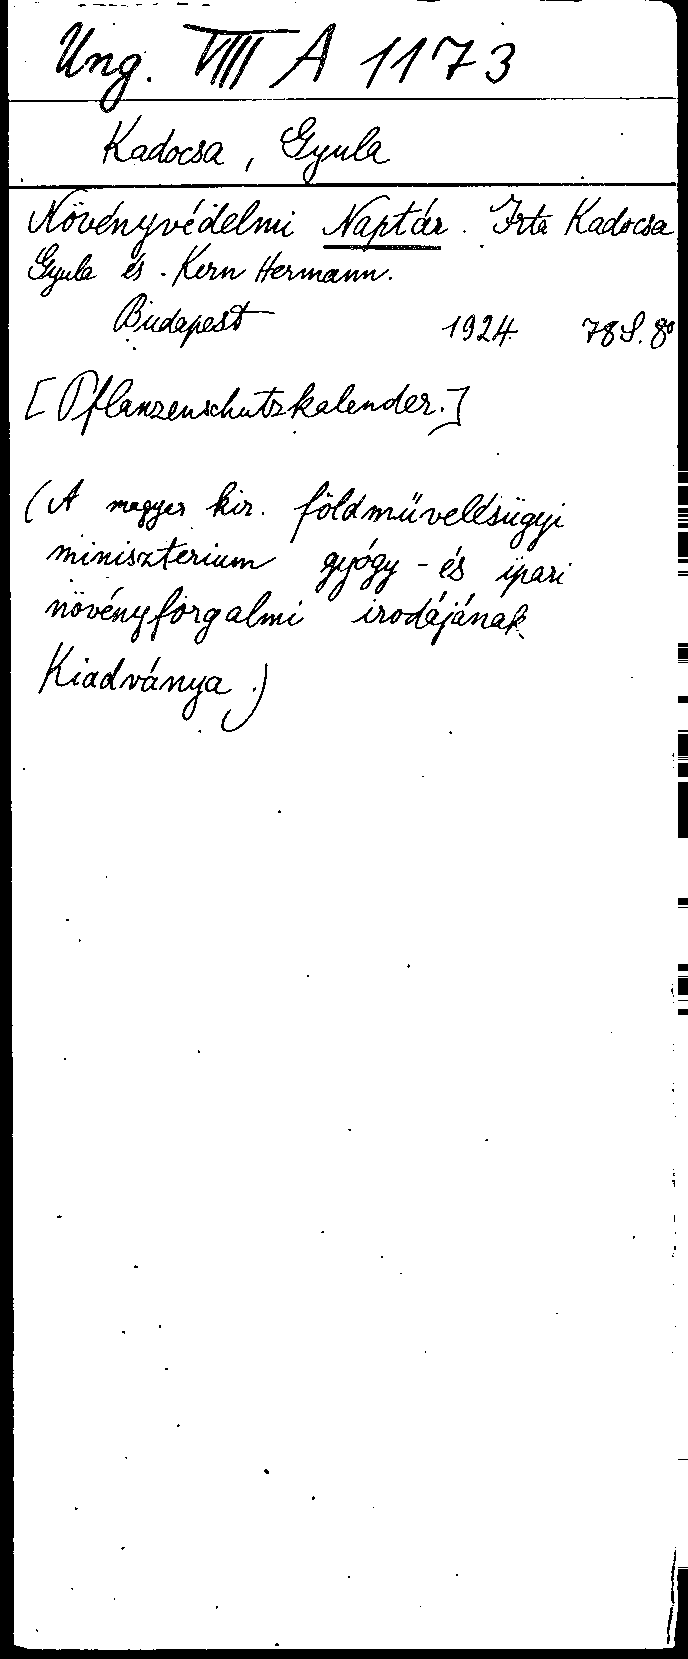 Ung. VIII A 1173
Kadocsa, Gyula
Növényvédelmi Naptár. Irta Kadocsa
Gyula és Kern Hermann.
Budapest 1924 78 S. 8°
[Pflanzenschutzkalender.]
(A magyar kir. földmüvelésügyi
miniszterium gyógy- és ipari
növényforgalmi irodájának
Kiadványa.)